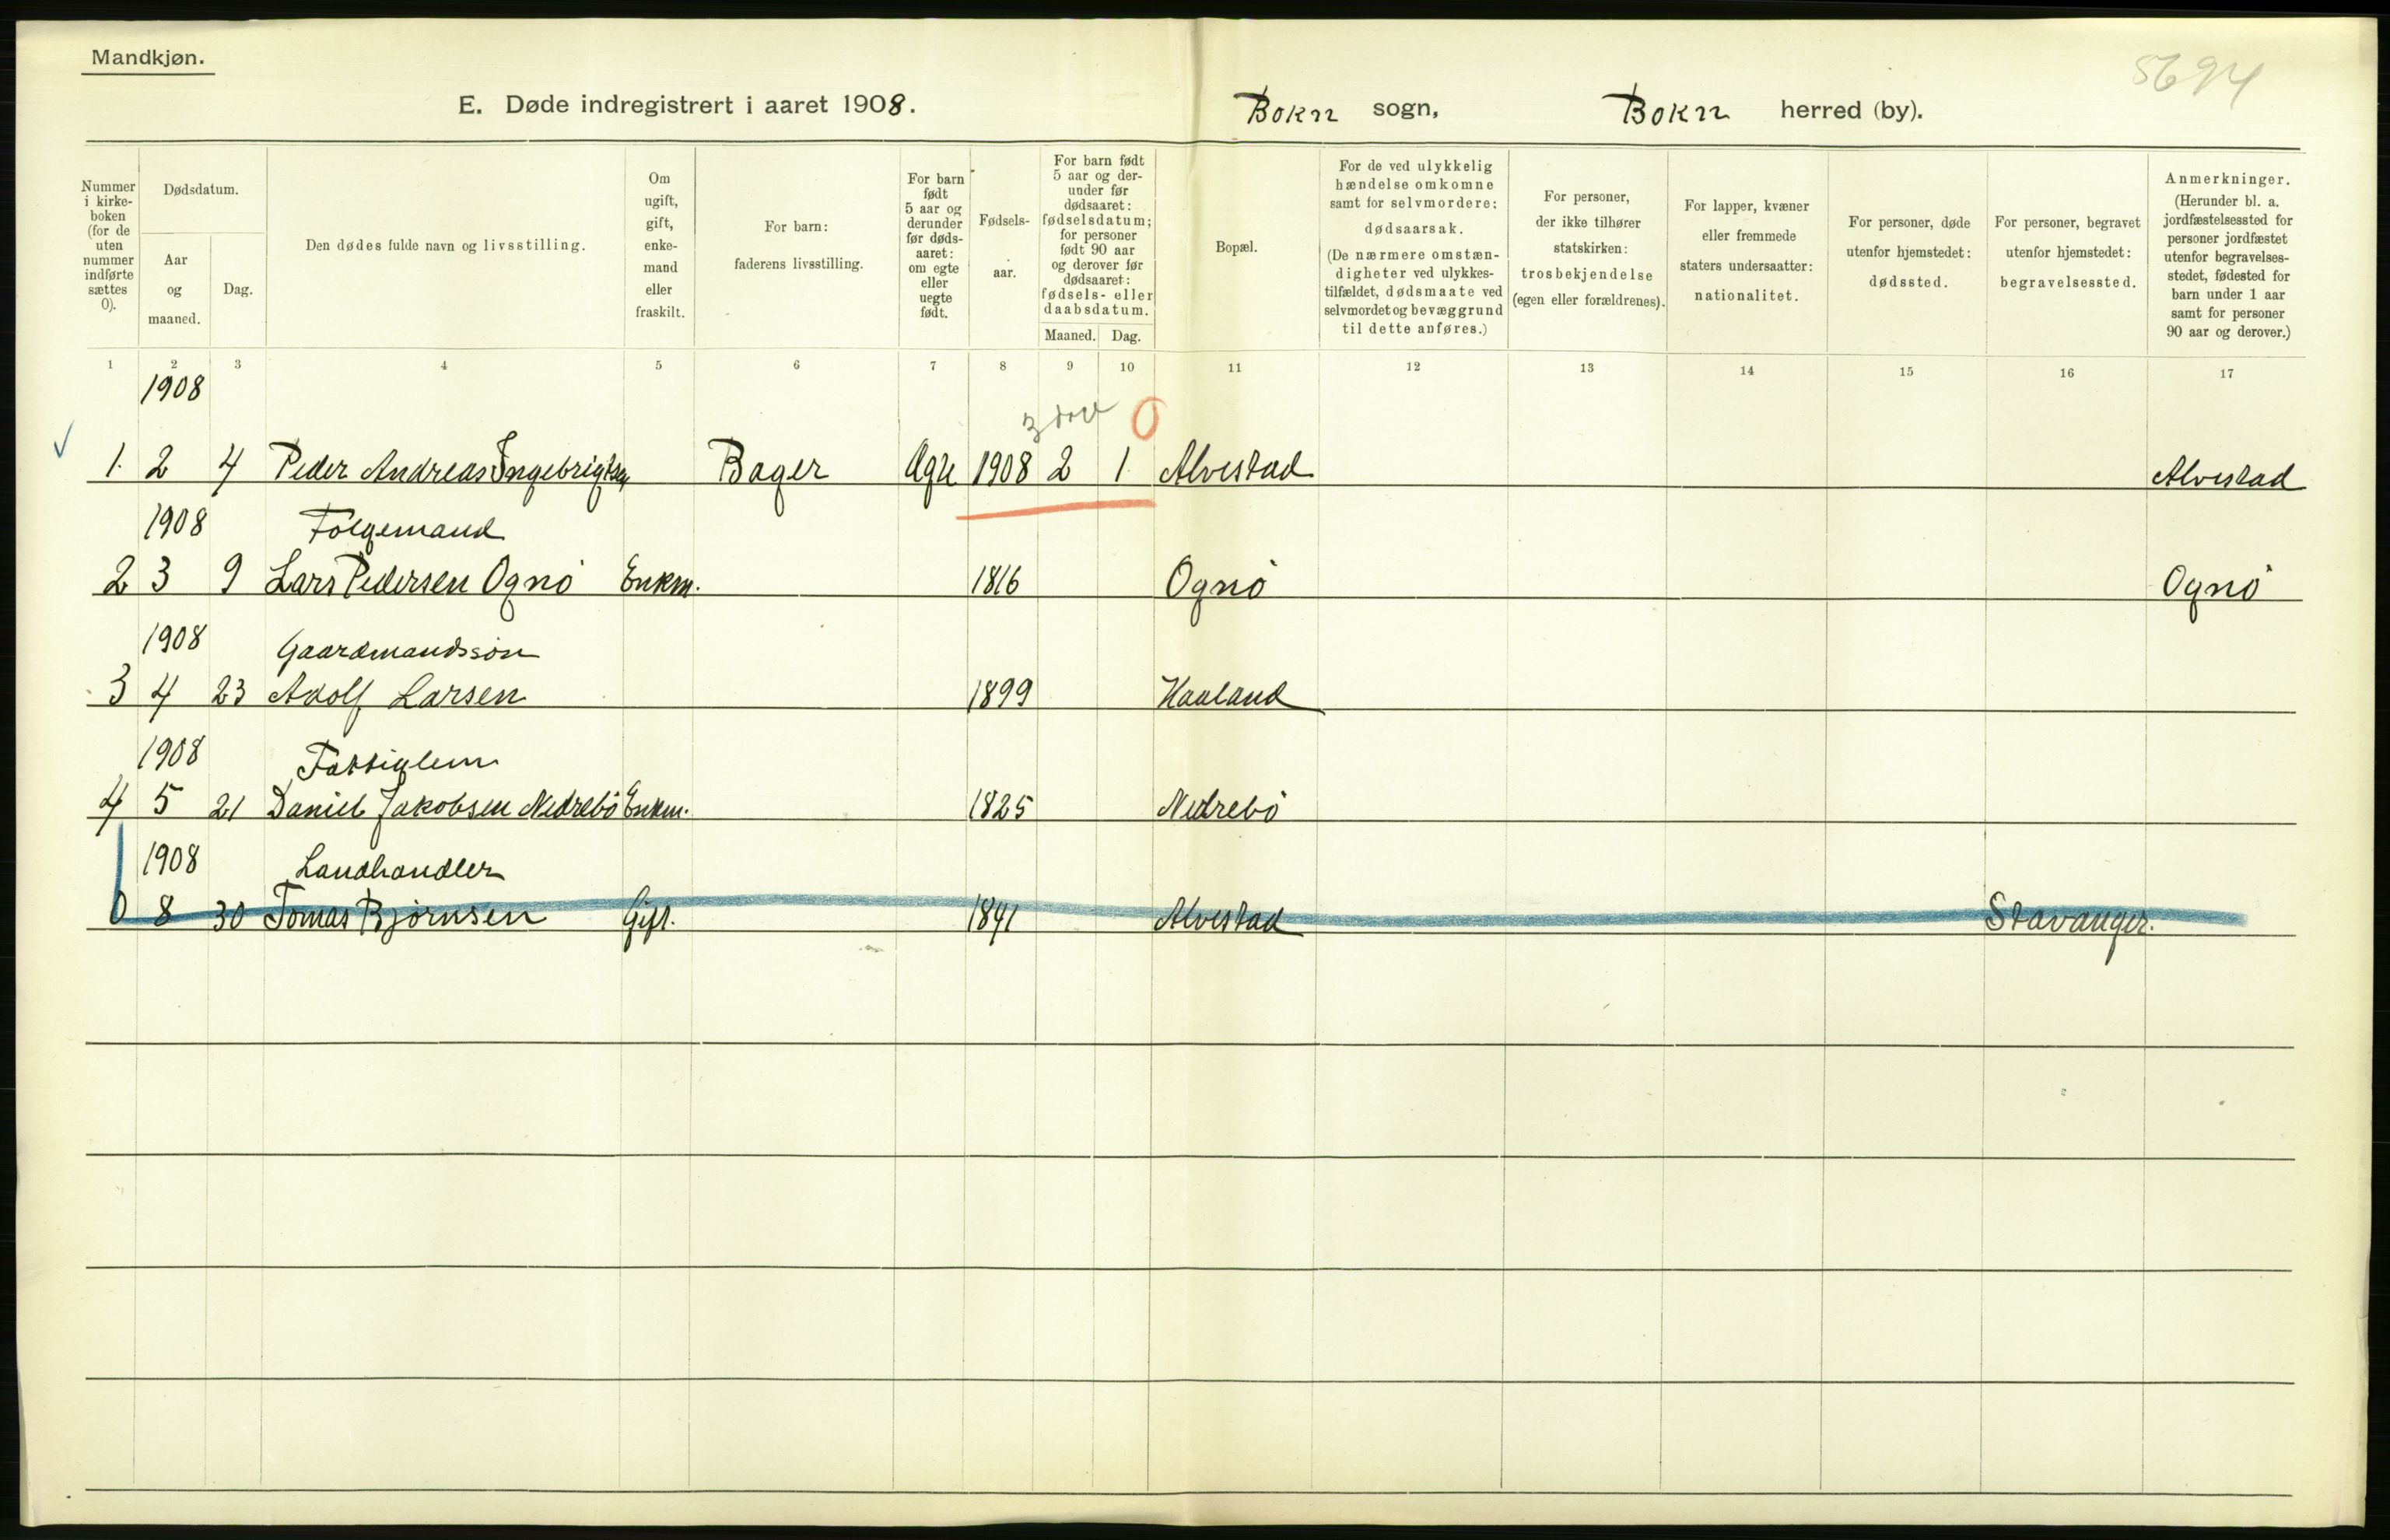 Mandkjøn.
5694
E. Døde indregistrert i aaret 1908.
Bokn sogn, Bokn herred (by).
Nummer i kirke-
boken
(for de
uten
nummer
indførte
sættes
0).
Dødsdatum.
Aar
og
maaned.
Dag.
Den dødes fulde navn og livsstilling.
Om
ugift,
gift,
enke-
mand
eller
fraskilt.
For barn:
faderens livsstilling.
For barn
født
5 aar og
derunder
før døds-
aaret:
om egte
eller
uegte
født.
Fødsels-
aar.
For barn født
5 aar og der-
under før
dødsaaret:
fødselsdatum;
for personer
født 90 aar
og derover før
dødsaaret:
fødsels- eller
daabsdatum.
Maaned. Dag.
Bopæl.
For de ved ulykkelig
hændelse omkomne
samt for selvmordere:
dødsaarsak.
(De nærmere omstæn-
digheter ved ulykkes-
tilfældet, dødsmaate ved
selvmordet og bevæggrund
til dette anføres.)
For personer,
der ikke tilhører
statskirken:
trosbekjendelse
(egen eller forældrenes).
For lapper, kvæner
eller fremmede
staters undersaatter:
nationalitet.
For personer, døde
utenfor hjemstedet:
dødssted.
For personer, begravet
utenfor hjemstedet:
begravelsessted.
Anmerkninger.
(Herunder bl. a.
jordfæstelsessted for
personer jordfæstet
utenfor begravelses-
stedet, fødested for
barn under 1 aar
samt for personer
90 aar og derover.)
1 2 3 4 5 6 7 8 9 10 11 12 13 14 15 16 17
1908
3 0
1. 2 4 Peder Andreas Ingebrigtsen Bager Ægte 1908 2 1. Alvestad Alvestad
1908 Følgemand
2 3 9 Lars Pedersen Ognø Enkm. 1816 Ognø Ognø
1908 Gaardmandssøn
3 4 23 Adolf Larsen 1899 Haaland
1908 Fattiglem
4 5 21 Daniel Jakobsen Nedrebø Enkm. 1825 Nedrebø
1908 Landhandler
0 8 30 Tomas Bjørnsen Gift. 1841 Alvestad Stavanger.